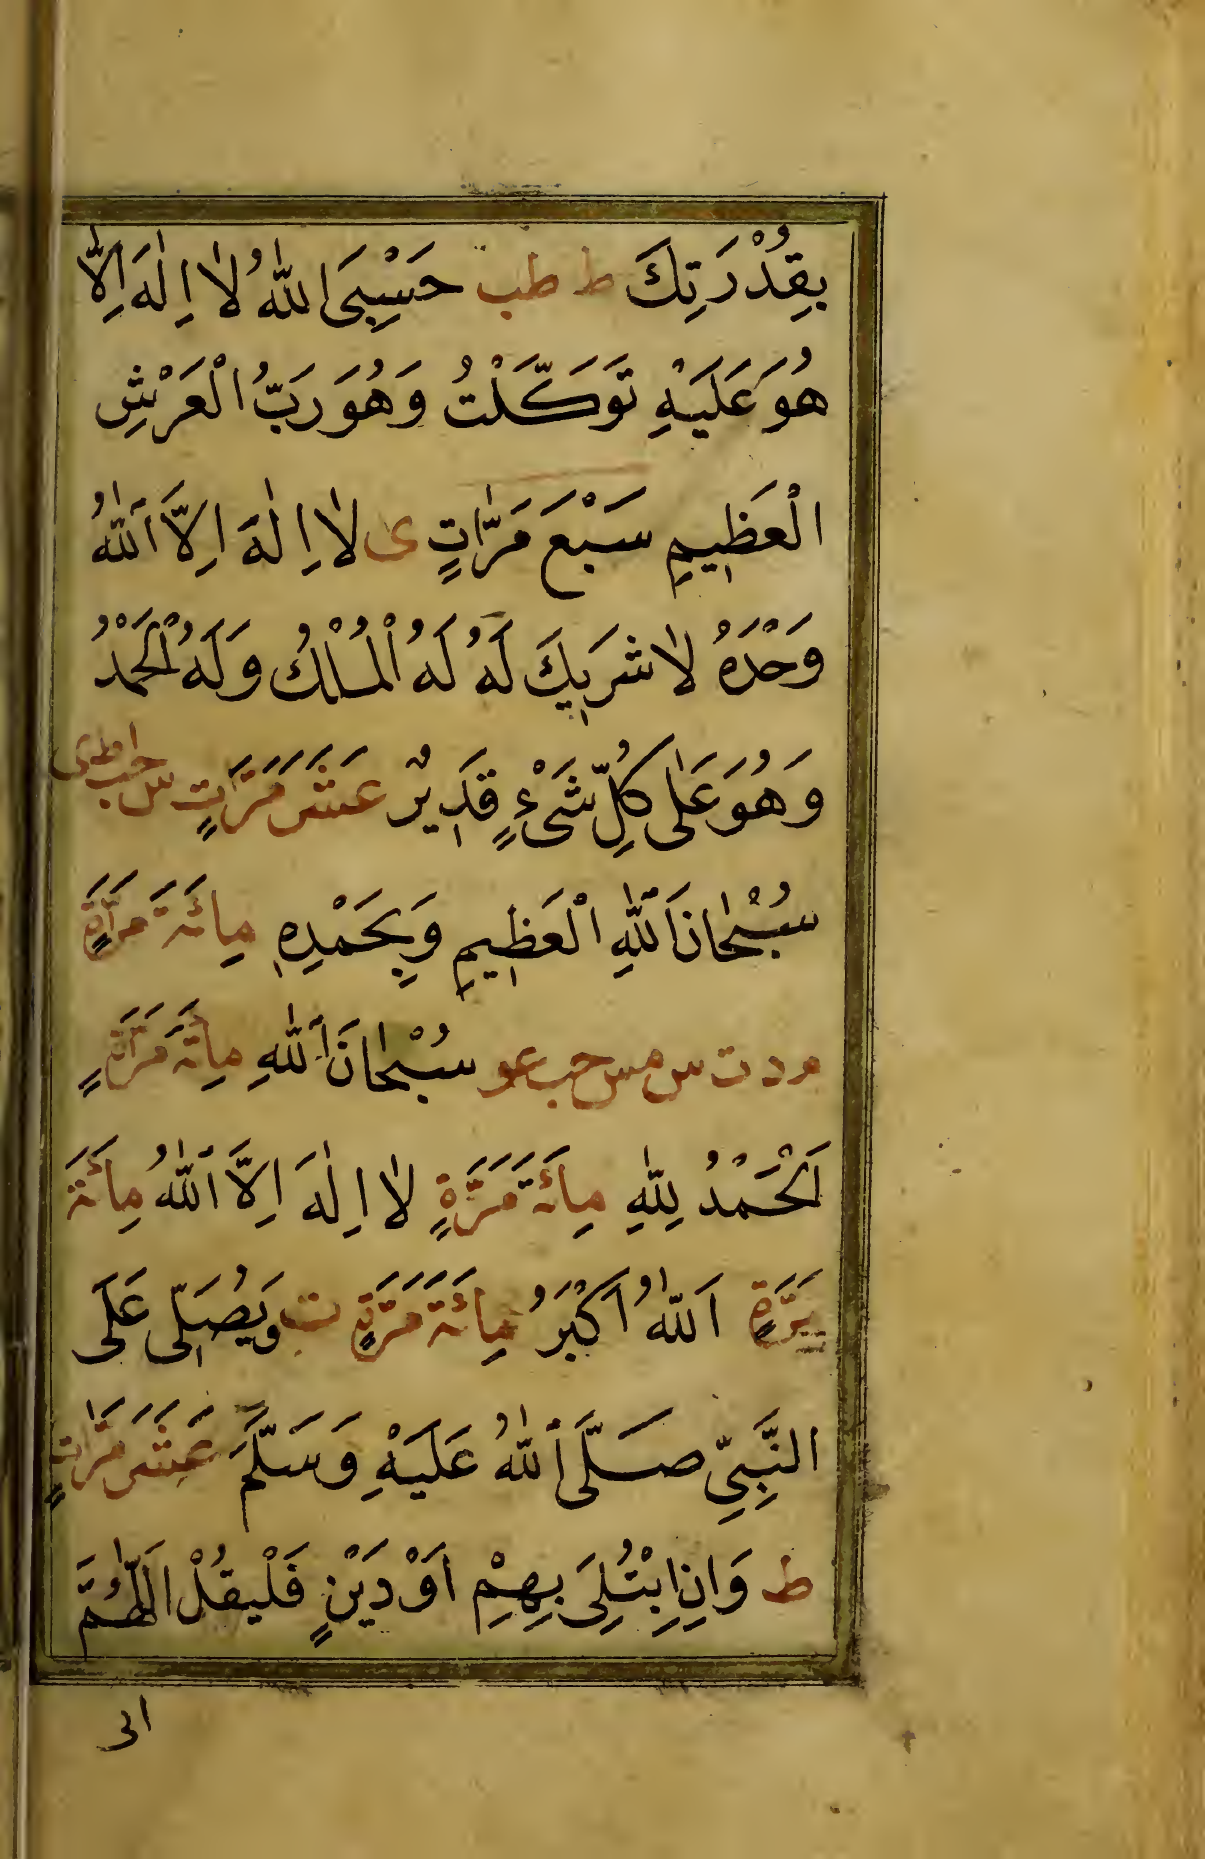 بِقُدْرَتِكَ ط طب حَسْبِىَ اللّٰهُ لَا اِلٰهَ اِلَّا
هُوَ عَلَيْهِ تَوَكَّلْتُ وَهُوَ رَبُّ الْعَرْشِ
الْعَظِيمِ سَبْعَ مَرَّاتٍ ى لَا اِلٰهَ اِلَّا اللّٰهُ
وَحْدَهُ لَا شَرِيكَ لَهُ لَهُ الْمُلْكُ وَلَهُ الْحَمْدُ
وَهُوَ عَلٰى كُلِّ شَىْءٍ قَدِيرٌ عَشَرَ مَرَّاتٍ س حب ط ى
سُبْحَانَ اللّٰهِ الْعَظِيمِ وَبِحَمْدِهِ مِائَةَ مَرَّةٍ
م د ت س مس حب عو سُبْحَانَ اللّٰهِ مِائَةَ مَرَّةٍ
اَلْحَمْدُ لِلّٰهِ مِائَةَ مَرَّةٍ لَا اِلٰهَ اِلَّا اللّٰهُ مِائَةَ
مَرَّةٍ اَللّٰهُ اَكْبَرُ مِائَةَ مَرَّةٍ ت وَيُصَلِّى عَلَى
النَّبِىِّ صَلَّى اللّٰهُ عَلَيْهِ وَسَلَّمَ عَشَرَ مَرَّاتٍ
ط وَاِنِ ابْتُلِىَ بِهِمْ اَوْ دَيْنٍ فَلْيَقُلْ اَللّٰهُمَّ
انى